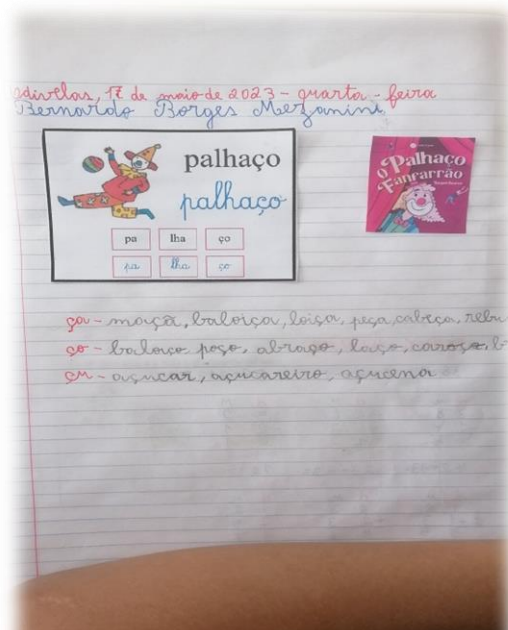 odivelas, 17 de maio de 2023 - quarta - feira
Bernardo Borges Mezanini
palhaço
palhaço
pa lha ço
pa lha ço
O Palhaço
Fanfarrão
ça - maçã, baloiça, loiça, peça, cabeça,
ço - baloiço poço, abraço, laço, caroço,
çu - açucar, açucareiro, açucena